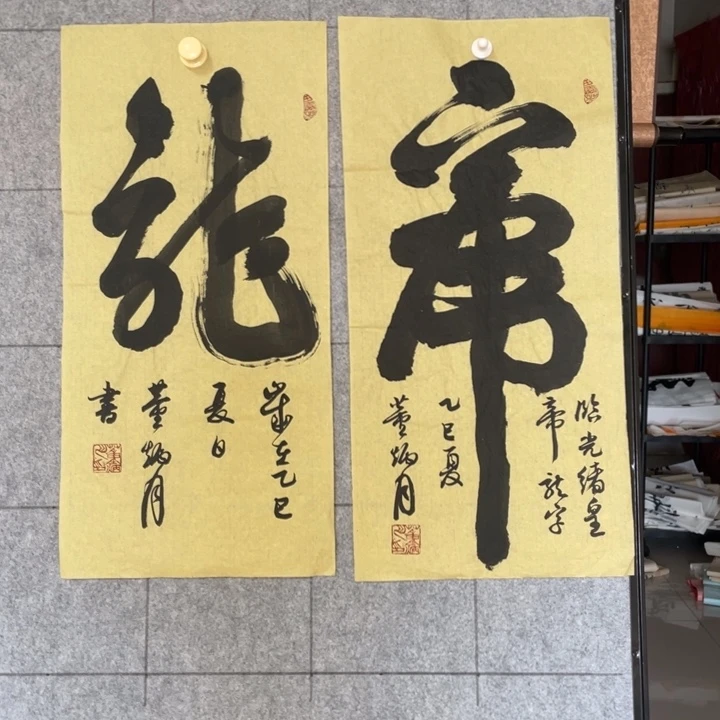 臨光緒皇
帝龍字
乙巳夏
董炳月
龍
歲在乙巳
夏日
董炳月
書